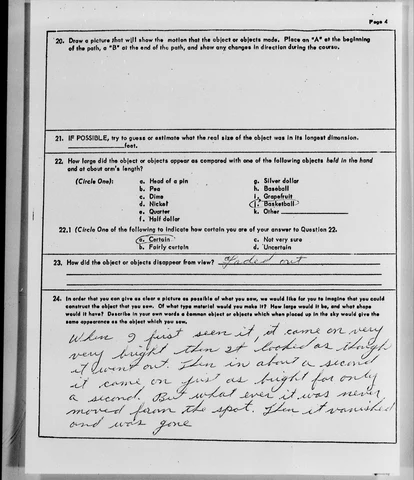 Page 4
20. Draw a picture that will show the motion that the object or objects made. Place an "A" at the beginning
of the path, a "B" at the end of the path, and show any changes in direction during the course.
21. IF POSSIBLE, try to guess or estimate what the real size of the object was in its longest dimension.
feet.
22. How large did the object or objects appear as compared with one of the following objects held in the hand
and at about arm's length?
(Circle One):
a. Head of a pin
b. Pea
c. Dime
d. Nickel
e. Quarter
f. Half dollar
g. Silver dollar
h. Baseball
i. Grapefruit
j. Basketball
k. Other
22.1 (Circle One of the following to indicate how certain you are of your answer to Question 22.
a. Certain
b. Fairly certain
c. Not very sure
d. Uncertain
23. How did the object or objects disappear from view? Faded out
24. In order that you can give as clear a picture as possible of what you saw, we would like for you to imagine that you could
construct the object that you saw. Of what type material would you make it? How large would it be, and what shape
would it have? Describe in your own words a common object or objects which when placed up in the sky would give the
same appearance as the object which you saw.
When I first seen it, it came on very
very bright then it looked as though
it went out. Then in about a second
it came on just as bright for only
a second. But what ever it was never
moved from the spot. Then it vanished
and was gone